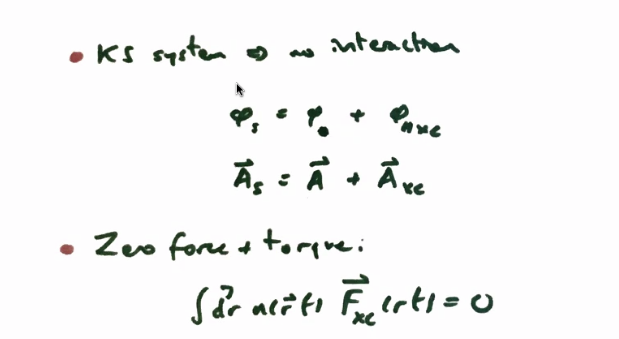 • KS system ⇒ no interaction
φₛ = φ₀ + φ_Hxc
A⃗ₛ = A⃗ + A⃗_xc
• Zero force + torque:
∫ dr⃗ n(r⃗t) F⃗_xc(rt) = 0